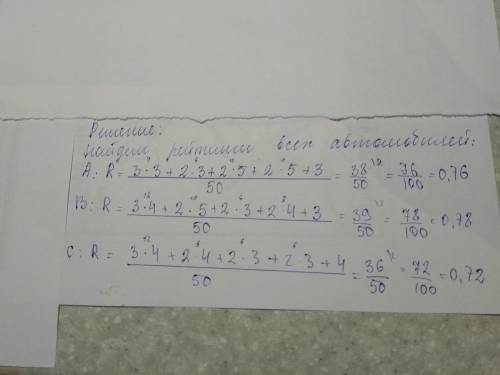 Решение:
Найдем рейтинги всех автомобилей:
A: R = (3·3 + 2·3 + 2·5 + 2·5 + 3)/50 = 38/50 = 76/100 = 0,76
B: R = (3·4 + 2·5 + 2·3 + 2·4 + 3)/50 = 39/50 = 78/100 = 0,78
C: R = (3·4 + 2·4 + 2·3 + 2·3 + 4)/50 = 36/50 = 72/100 = 0,72